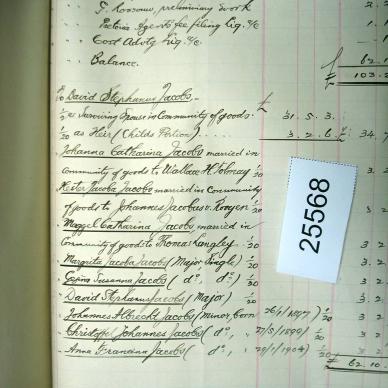 preliminary work 2.
Agents fee filing Liq. a/c 1.
Cost Advtg Liq. a/c
Balance. £ 62.1
£ 103.2
David Stephanus Jacobs
½ as Surviving Spouse in Community of goods. £ 31. 5. 3.
1/20 as Heir (Childs Portion) 3. 2. 6. £ 34. 7
Johanna Catharina Jacobs married in
community of goods to Wallace H 1/20 3. 2.
Hester Jacoba Jacobs married in Community
of goods to Johannes Jacobus v. Rooyen 1/20 3 2
Maggel Catharina Jacobs married in
Community of goods to Thomas Langley 1/20 3 2
Margrita Jacoba Jacobs (Major Single) 1/20 3 2
Susanna Jacobs ( do; do; ) 1/20 3 2
David Stephanus Jacobs (Major) 1/20 3 2
Johannes Albrecht Jacobs (minor, born 1/20 3 2
Christoffel Johannes Jacobs ( do; 1/20 3 2
Anna Francina Jacobs ( do, 1/20 3 2
£ 62.10
25568